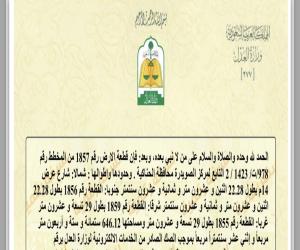 بسم الله الرحمن الرحيم
المملكة العربية السعودية
وزارة العدل
[٢٧٧]
الحمد لله وحده والصلاة والسلام على من لا نبي بعده، وبعد: فإن قطعة الارض رقم 1857 من المخطط رقم
978/ت/ 1423 / 2 التابع لمركز الصويدرة محافظة الحناكية . وحدودها واطوالها : شمالا: شارع عرض
14م بطول 22.28 اثنين و عشرون متر و ثمانية و عشرون سنتمتر جنوبا: القطعة رقم 1856 بطول 22.28
اثنين و عشرون متر و ثمانية و عشرون سنتمتر شرقا: القطعة رقم 1859 بطول 29 تسعة و عشرون متر
غربا: القطعة رقم 1855 بطول 29 تسعة و عشرون متر ومساحتها 646.12 ستمائة و ستة و أربعون متر
مربعا و إثني عشر سنتمتراً مربعاً بموجب الصك الصادر من الخدمات الالكترونية لوزارة العدل برقم